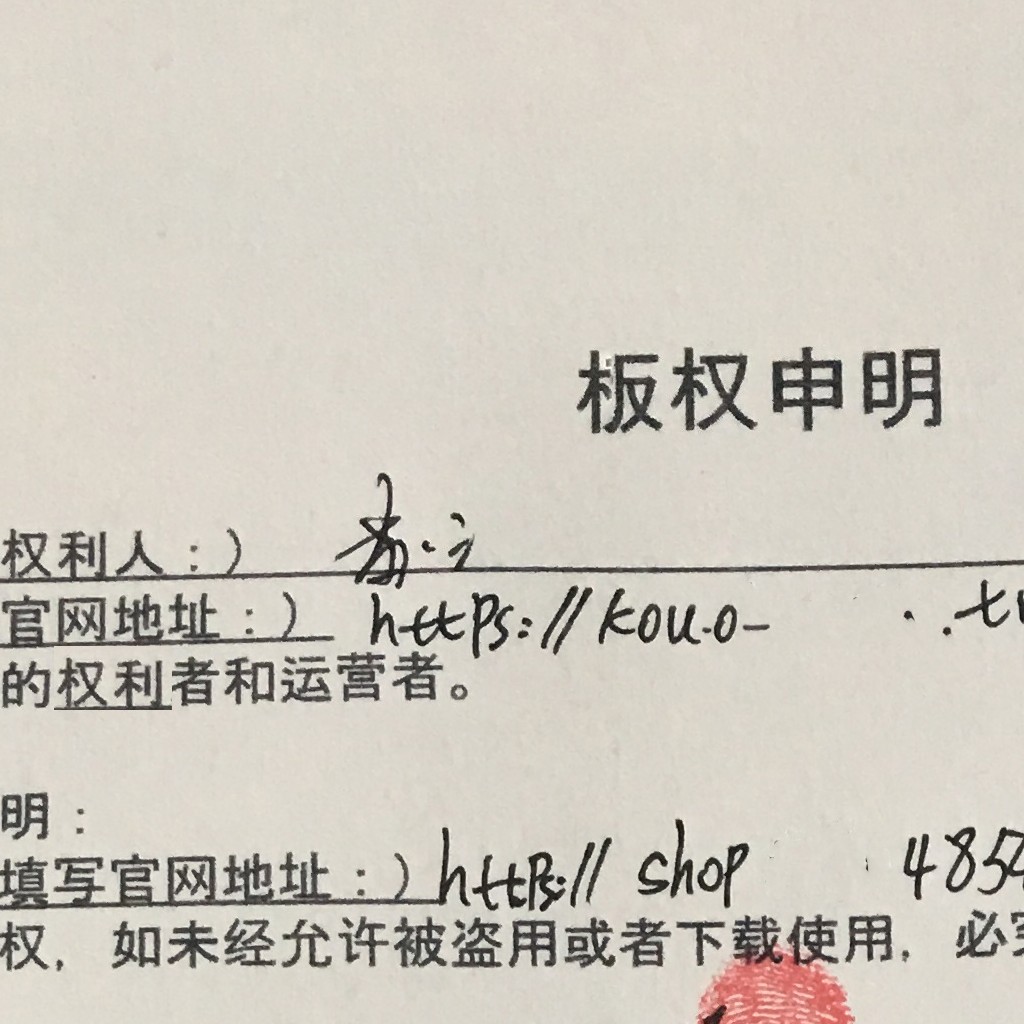 板权申明
权利人：）
官网地址：） https://kou.o-
的权利者和运营者。
明：
填写官网地址：）https:// shop 4854
权，如未经允许被盗用或者下载使用，必